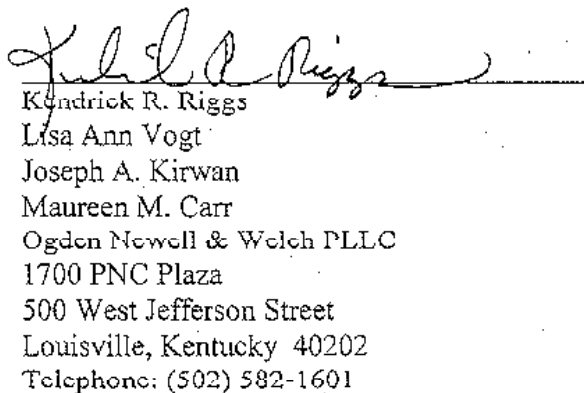 Kendrick R. Riggs
Kendrick R. Riggs
Lisa Ann Vogt
Joseph A. Kirwan
Maureen M. Carr
Ogden Newell & Welch PLLC
1700 PNC Plaza
500 West Jefferson Street
Louisville, Kentucky 40202
Telephone: (502) 582-1601